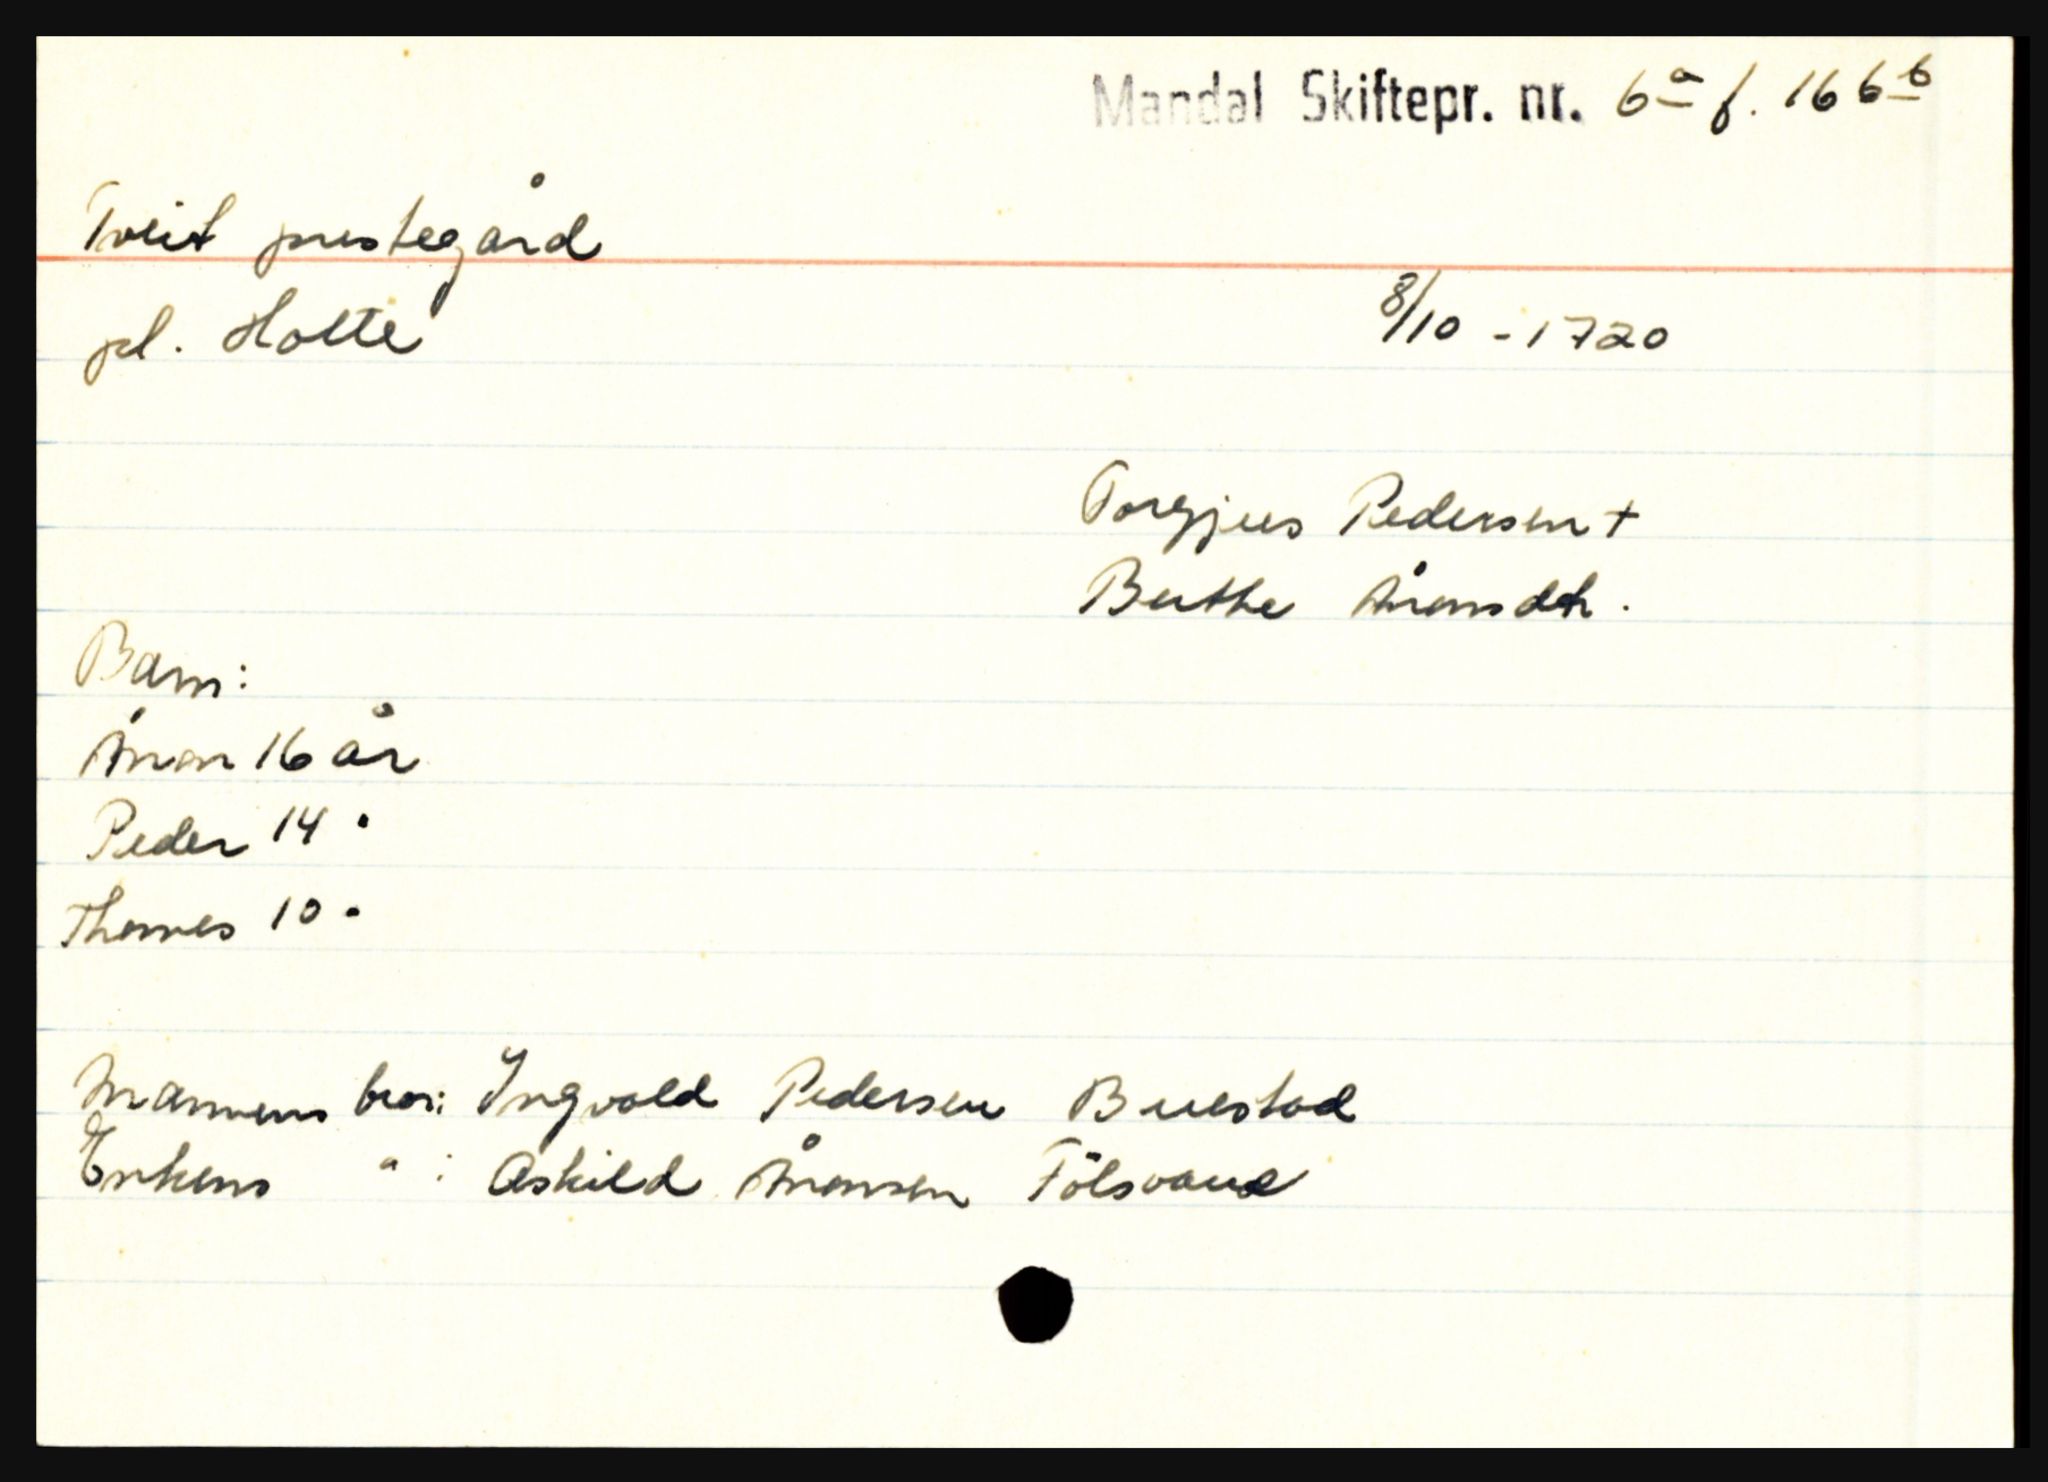 Mandal Skiftepr. nr. 6a f. 166b
Tveit prestegård
pl. Holte
8/10 - 1720
Torgjus Pedersen +
Berthe Ånonsdtr.
Barn:
Ånon 16 år
Peder 14 "
Thomes 10 "
Mannens bror: Ingvald Pedersen Buestad
Enkens " : Askild Ånonsen Fölsvand